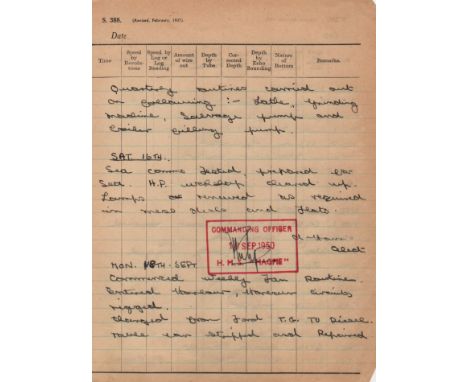 S. 388. (Revised, February, 1937).
Date
Time Speed by Revolutions Speed by Log or Log Reading Amount of wire out Depth by Tube Corrected Depth Depth by Echo Sounding Nature of Bottom Remarks.
Quarterly routines carried out
on following :- Lathe, grinding
machine, Salvage pump and
boiler filling pump.
SAT 16TH.
Sea comms tested, prepared for
Sea. H.P. workshop cleaned up.
Lamps renewed as required
in mess decks and flats
COMMANDING OFFICER
SEP 1950
H. M. S. "MAGPIE"
MON. 18TH. SEPT
Commenced Weekly Fan Routines.
Entered Harbour, Harbour circuits
rigged.
Changed from Ford T.G. TO Diesel.
stripped and Repaired